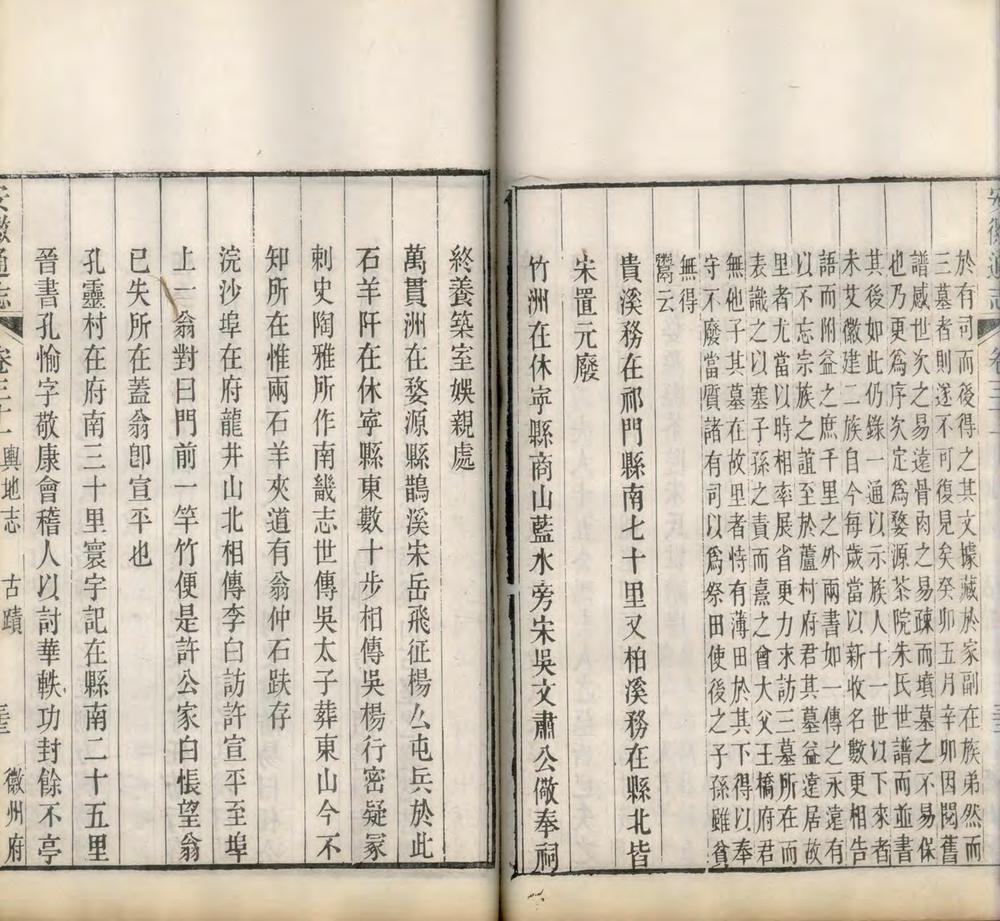 於有司而後得之其文據藏於家副在族弟然而
三墓者則遂不可復見矣癸卯五月辛卯因閱舊
譜感世次之易遠骨肉之易疎而墳墓之不易保
也乃更爲序次定爲婺源茶院朱氏世譜而並書
其後如此仍錄一通以示族人十一世以下來者
未艾徽建二族自今每歲當以新收名數更相告
語而附益之庶千里之外兩書如一傳之永遠有
以不忘宗族之誼至於蘆村府君其墓益遠居故
里者尤當以時相率展省更力來訪三墓所在而
表識之以塞子孫之責而熹之曾大父王橋府君
無他子其墓在故里者恃有薄田於其下得以奉
守不廢當質諸有司以爲祭田使後之子孫雖貧
無得
鬻云
貴溪務在祁門縣南七十里又柏溪務在縣北皆
宋置元廢
竹洲在休寧縣商山藍水旁宋吳文肅公儆奉祠
終養築室娛親處
萬貫洲在婺源縣鵲溪宋岳飛征楊么屯兵於此
石羊阡在休寧縣東數十步相傳吳楊行密疑冢
刺史陶雅所作南畿志世傳吳太子葬東山今不
知所在惟兩石羊夾道有翁仲石趺存
浣沙埠在府龍井山北相傳李白訪許宣平至埠
上一翁對曰門前一竿竹便是許公家白悵望翁
已失所在蓋翁卽宣平也
孔靈村在府南三十里寰宇記在縣南二十五里
晉書孔愉字敬康會稽人以討華軼功封餘不亭
安徽通志
輿地志
古蹟
徽州府